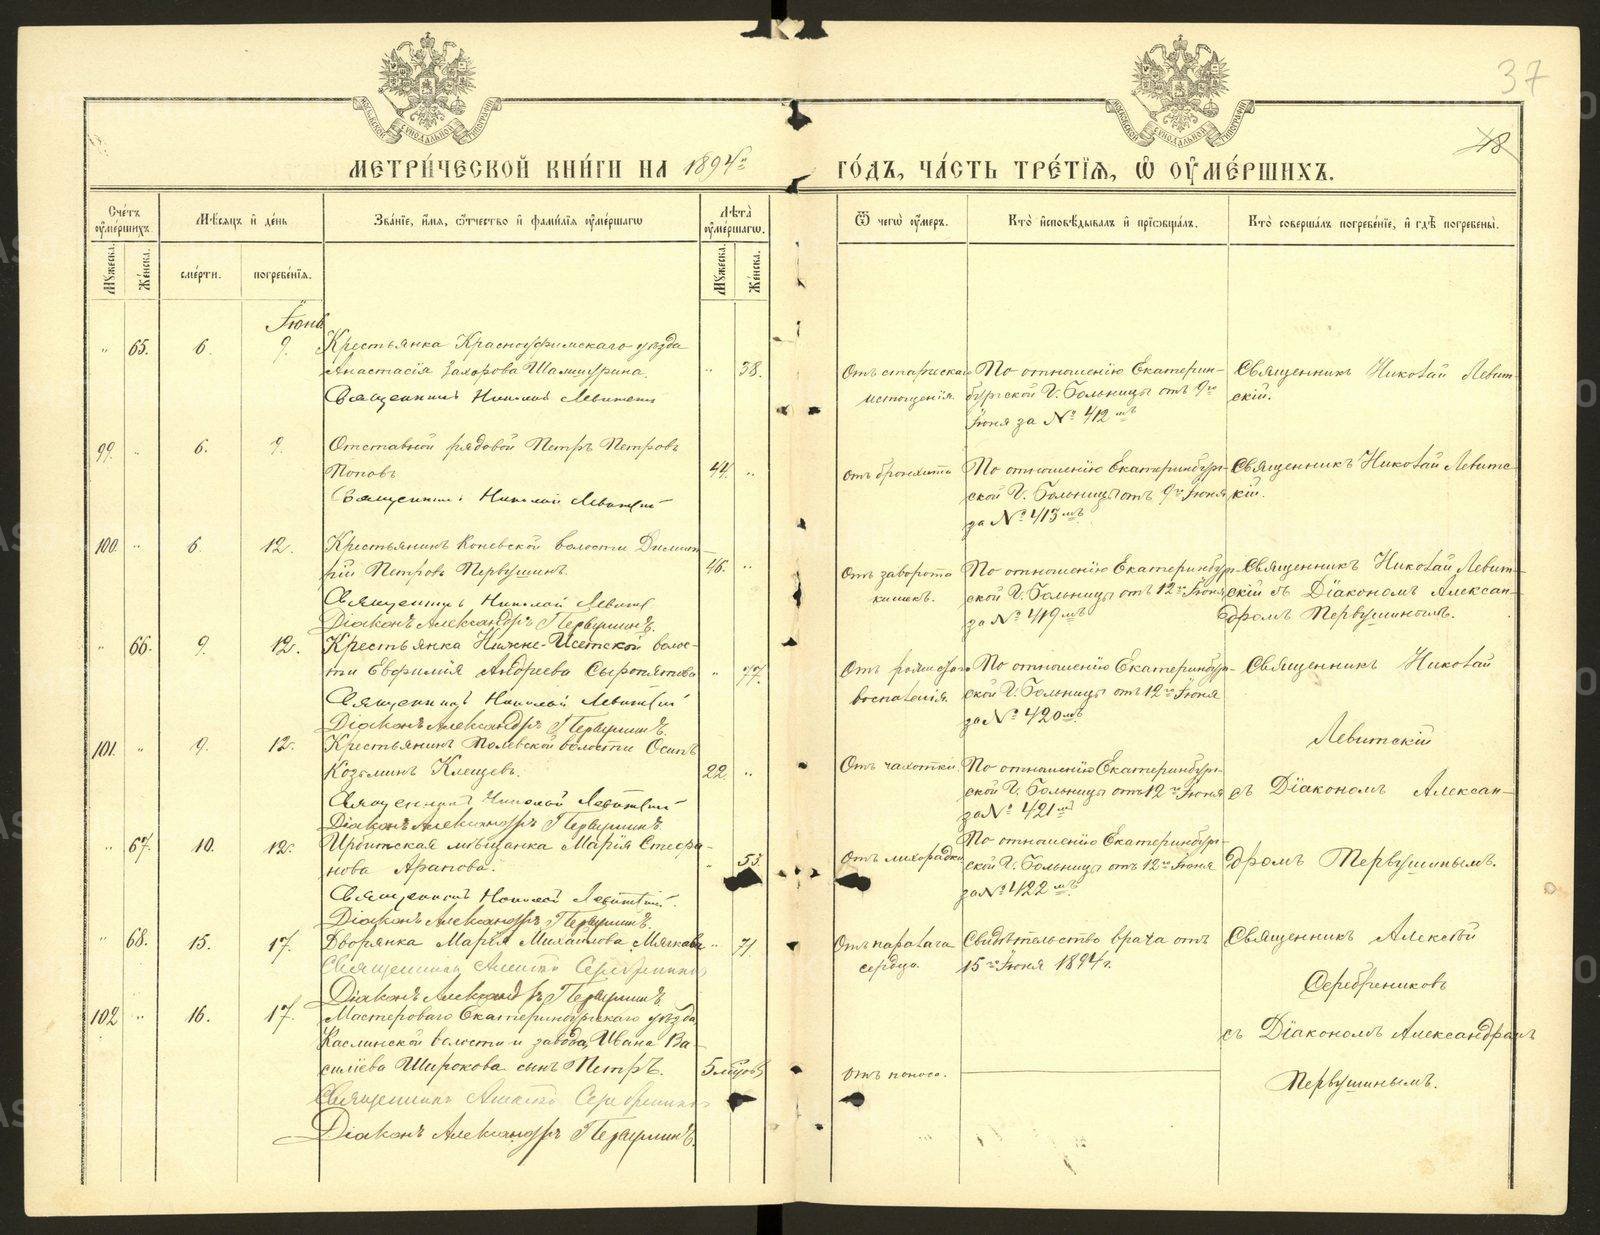 37
18
МЕТРИ́ЧЕСКОЙ КНИ́ГИ НА 1894й ГО́ДЪ, ЧА́СТЬ ТРЕ́ТІѦ, Ѽ ОУ҆МЕ́РШИХЪ.
Сче́тъ оу҆ме́ршихъ.
Мѣ́сяцъ и҆ де́нь
Зва́нїе, и҆́мя, ѻ҆́тчество и҆ фами́лїя оу҆ме́ршагѡ
Лѣ́та оу҆ме́ршагѡ.
Ѿ чегѡ̀ оу҆́меръ.
Кто̀ и҆сповѣ́дывалъ и҆ прїѡбща́лъ.
Кто̀ соверша́лъ погребе́нїе, и҆ гдѣ̀ погребены̀.
Му́жеска.
Же́нска.
сме́рти.
погребе́нїя.
Му́жеска.
Же́нска.
Іюнь
„ 65. 6. 9. Крестьянка Красноуфимскаго уѣзда
Анастасія Захарова Шалтурина. „ 38.
Священникъ Николай Левитскій
Отъ старческаго
истощенія.
По отношенію Екатерин-
бургской Г. Больницы отъ 9го
Іюня за № 412мъ
Священникъ Николай Левит-
скій.
99. „ 6. 9. Отставной рядовой Петръ Петровъ
Поповъ 44. „
Священникъ Николай Левитскій
отъ бронхита
По отношенію Екатеринбург-
ской Г. Больницы отъ 9го Іюня
за № 413мъ
Священникъ Николай Левитс-
кій.
100. „ 6. 12. Крестьянинъ Коневской волости Димит-
рій Петровъ Первушинъ. 46. „
Священникъ Николай Левитс
Діаконъ Александръ Первушинъ.
Отъ заворота
кишекъ.
По отношенію Екатеринбург-
ской Г. Больницы отъ 12го Іюня
за № 419мъ
Священникъ Николай Левит-
скій съ Діакономъ Алексан-
дромъ Первушинымъ.
„ 66. 9. 12. Крестьянка Нижне-Исетской волос-
ти Евфимія Андреева Сыропятова „ 77.
Священникъ Николай Левитскій
Діаконъ Александръ Первушинъ.
Отъ рожистаго
воспаленія.
По отношенію Екатеринбург-
ской Г. Больницы отъ 12го Іюня
за № 420мъ
Священникъ Николай
Левитскій
101. „ 9. 12. Крестьянинъ Полевской волости Осипъ
Козьминъ Клещевъ. 22. „
Священникъ Николай Левитскій
Діаконъ Александръ Первушинъ.
Отъ чахотки.
По отношенію Екатеринбург-
ской Г. Больницы отъ 12го Іюня
за № 421мъ
съ Діакономъ Алексан-
„ 67. 10. 12. Ирбитская мѣщанка Марія Стефа-
нова Арапова. „ 53.
Священникъ Николай Левитскій.
Діаконъ Александръ Первушинъ.
Отъ лихорадки
По отношенію Екатеринбург-
ской Г. Больницы отъ 12го Іюня
за № 422мъ
дромъ Первушинымъ.
„ 68. 15. 17. Дворянка Марія Михаилова Мягкова „ 71.
Священникъ Алексій Серебрениковъ
Діаконъ Александръ Первушинъ.
Отъ паралича
сердца.
Свидѣтельство врача отъ
15го Іюня 1894г.
Священникъ Алексѣй
Серебрениковъ
102 „ 16. 17. Мастероваго Екатеринбургскаго уѣзда
Каслинской волости и завода, Ивана Ва-
силіева Широкова сынъ Петръ. 5 мѣсяцовъ
Священникъ Алексій Серебрениковъ
Діаконъ Александръ Первушинъ.
отъ поноса.
съ Діакономъ Александромъ
Первушинымъ.